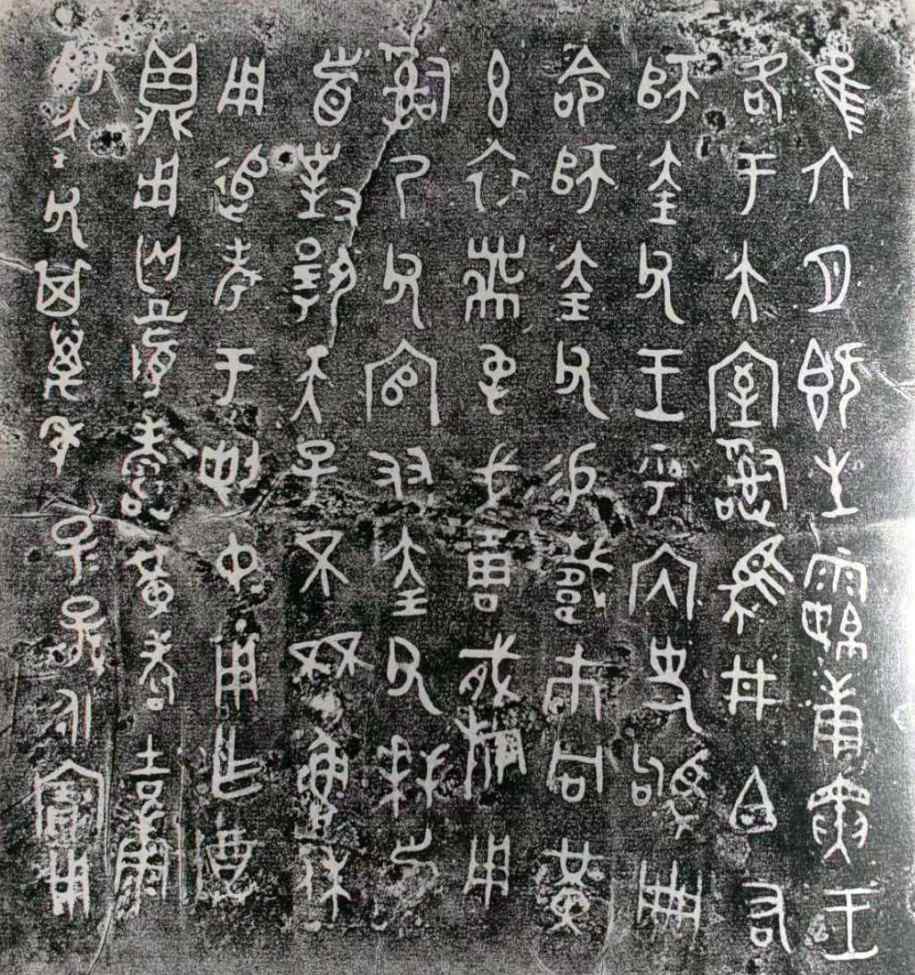 隹六月既生霸庚寅王
各于大室𤔲馬井白右
師奎父王乎內史駒冊
命師奎父易載市冋黃
玄衣黹屯戈琱㦿旂用
𤔲乃父官友奎父拜𩒨
首對揚天子不𠀠魯休
用追考于剌中用乍尊
鼎用匄眉壽黃耇吉康
師奎父其萬年子子孫孫永寶用